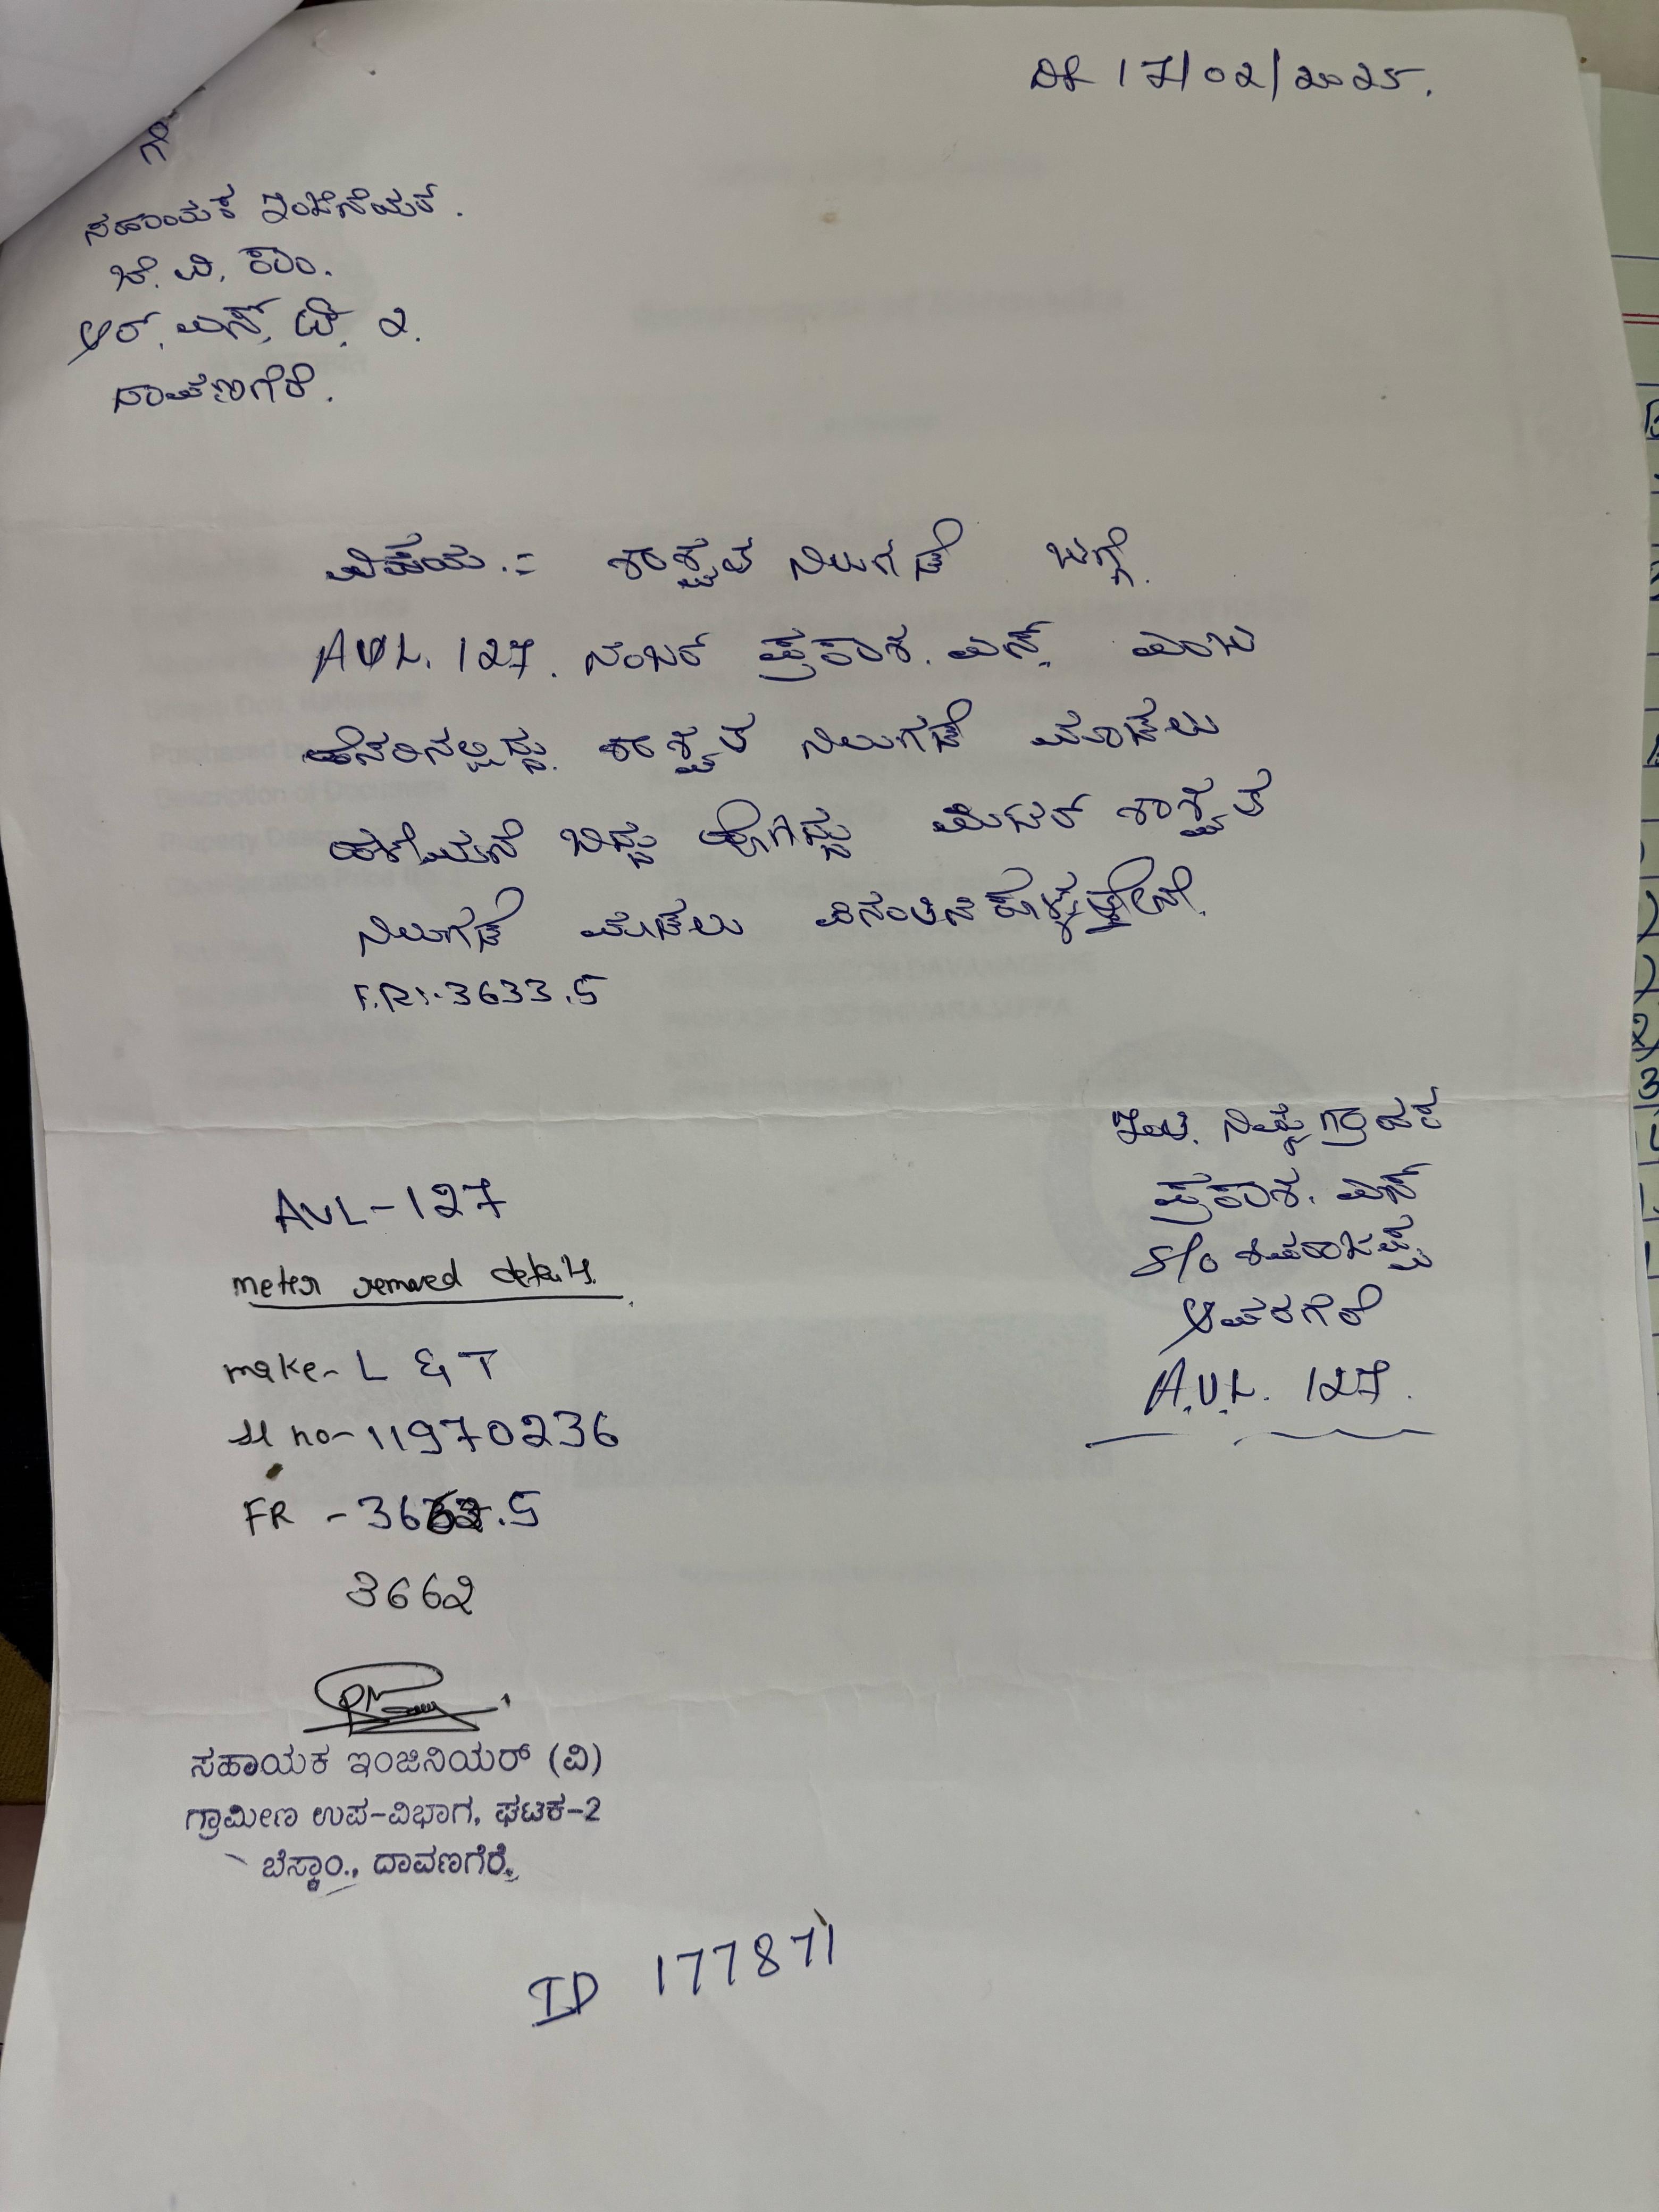 Dt 17/02/2025.
ಗೆ
ಸಹಾಯಕ ಇಂಜಿನಿಯರ್.
ಜೆ. ವಿ. ಕಾಂ.
ಆರ್. ಎಸ್. ಡಿ. 2.
ದಾವಣಗೆರೆ.
ವಿಷಯ :- ಶಾಶ್ವತ ನಿಲುಗಡೆ ಬಗ್ಗೆ.
AVL. 127. ನಂಬರ್ ಪ್ರಕಾಶ. ಎಸ್. ಎಂಬ
ಹೆಸರಿನಲ್ಲಿದ್ದು. ಶಾಶ್ವತ ನಿಲುಗಡೆ ಮಾಡಲು
ಹಳೆಯಮನೆ ಬಿದ್ದು ಹೋಗಿದ್ದು ಮೀಟರ್ ಶಾಶ್ವತ
ನಿಲುಗಡೆ ಮಾಡಲು
F.R:-3633.5
ಇಂತಿ. ನಿಮ್ಮ ಗ್ರಾಹಕ
ಪ್ರಕಾಶ. ಎಸ್
S/o ಶಿವರಾಜಪ್ಪ
ಆವರಗೆರೆ
A.V.L. 127.
AVL-127
meter removed details.
make- L & T
sl no-11970236
FR -
3662
ಸಹಾಯಕ ಇಂಜಿನಿಯರ್ (ವಿ)
ಗ್ರಾಮೀಣ ಉಪ-ವಿಭಾಗ, ಘಟಕ-2
ಬೆಸ್ಕಾಂ., ದಾವಣಗೆರೆ.
ID 177871